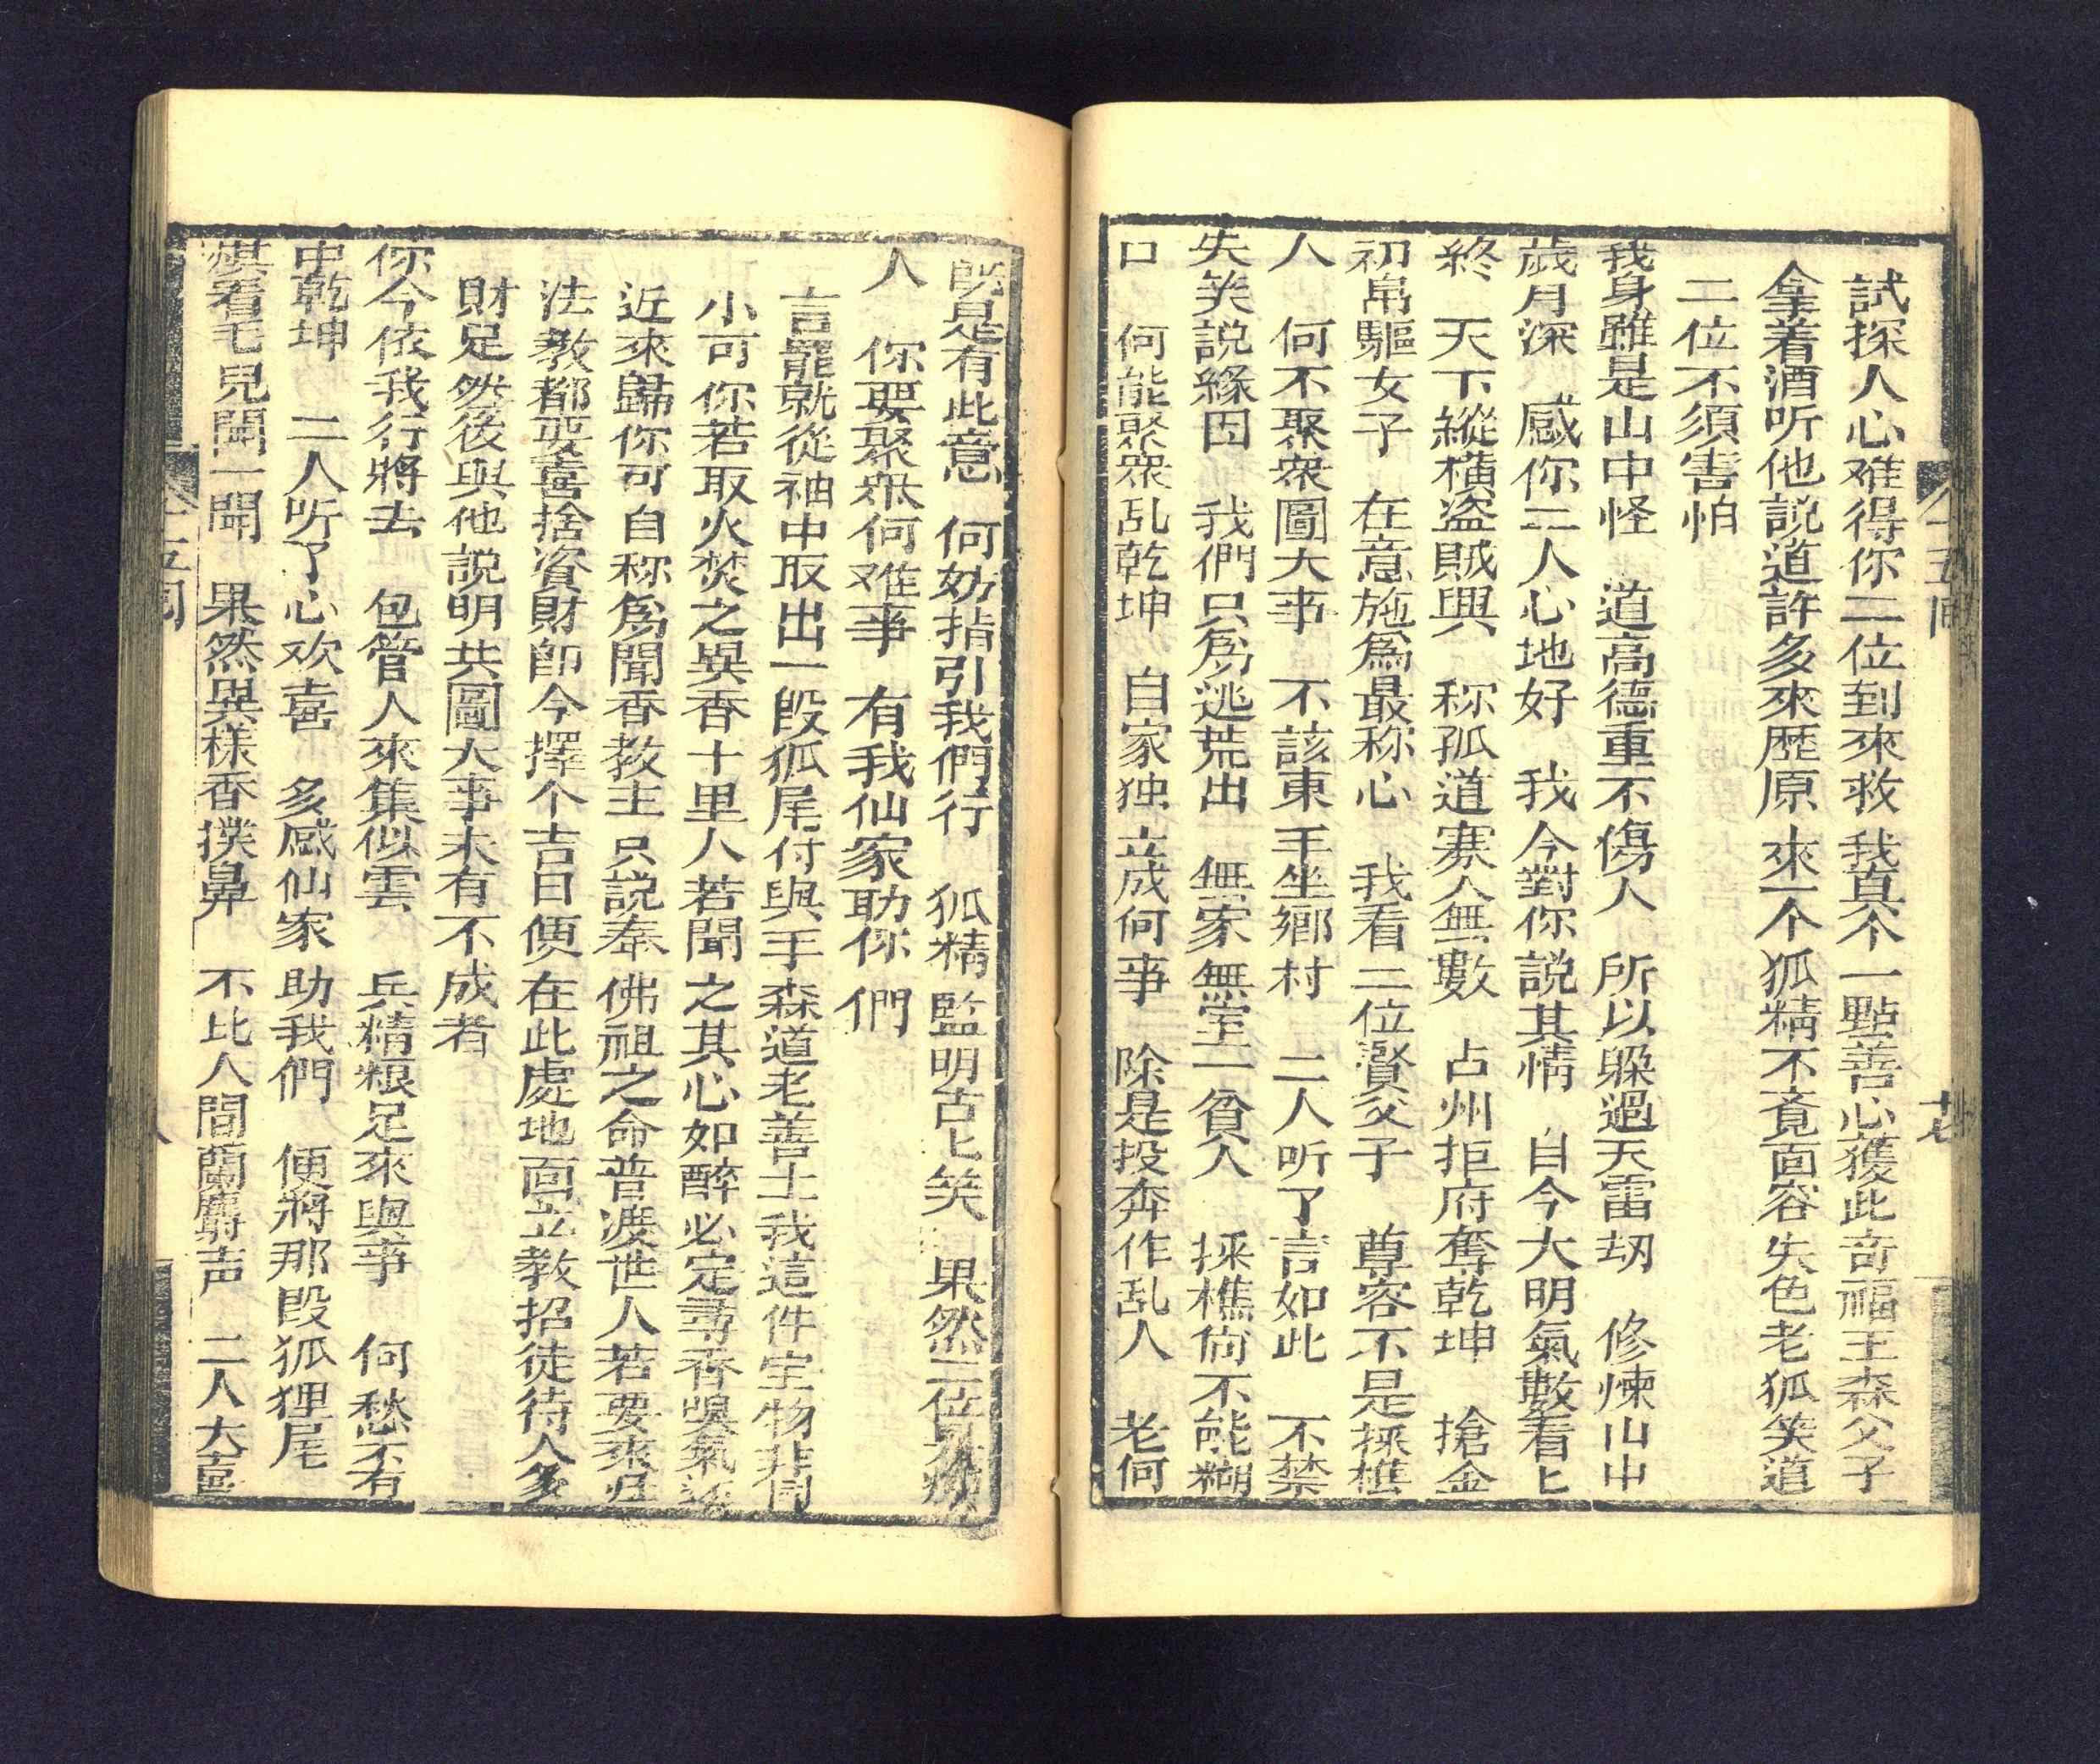 試探人心难得你二位到來救我真个一點善心獲此奇福王森父子
拿着酒听他説道許多來歷原來个狐精不竟面容失色老狐笑道
二位不須害怕
我身雖是山中怪 道高德重不傷人 所以躲過天雷刼 修煉山中
歲月深 感你二人心地好 我今對你説其情 自今大明氣數看匕
終 天下縱橫盗賊興 称孤道寡人無數 占州拒府奪乾坤 搶金
初帛驅女子 在意施爲最称心 我看二位賢父子 尊容不是採樵
人 何不聚衆圖大事 不該東手坐鄉村 二人听了言如此 不禁
失笑説緣因 我們只爲逃荒出 無家無室一貧人 採樵尙不能糊
口 何能聚衆乱乾坤 自家独立成何事 除是投奔作乱人 老何
既是有此意 何妨指引我們行 狐精監明古匕笑 果然二位
人 你要聚衆何难事 有我仙家助你們
言罷就從袖中取出一段狐尾付與王森道老善士我這件宝物非同
小可你若取火焚之異香十里人若聞之其心如醉必定尋香嗅氣
近來歸你可自称爲聞香教主只説奉佛祖之命普渡世人若要來
法教都要喜捨資財卽今擇个吉日便在此處地面立教招徒待人多
財足然後與他説明共圖大事未有不成者
你今依我行將去 包管人來集似雲 兵精粮足來與事 何愁不有
中乾坤 二人听了心欢喜 多感仙家助我們 便將那段狐狸尾
棋看毛兒聞一聞 果然異樣香撲鼻 不比人間蘭麝声 二人大喜
十五回
十七